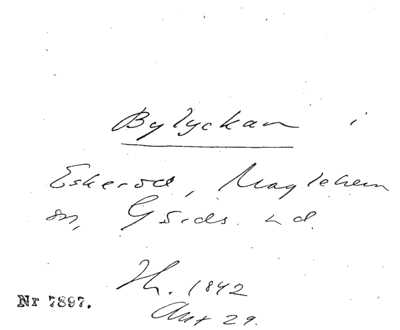 Bylyckan i
Eskeröd, Maglehem
sn, Gärds hd.
Th. 1842
Akt 29.
Nr 7897.